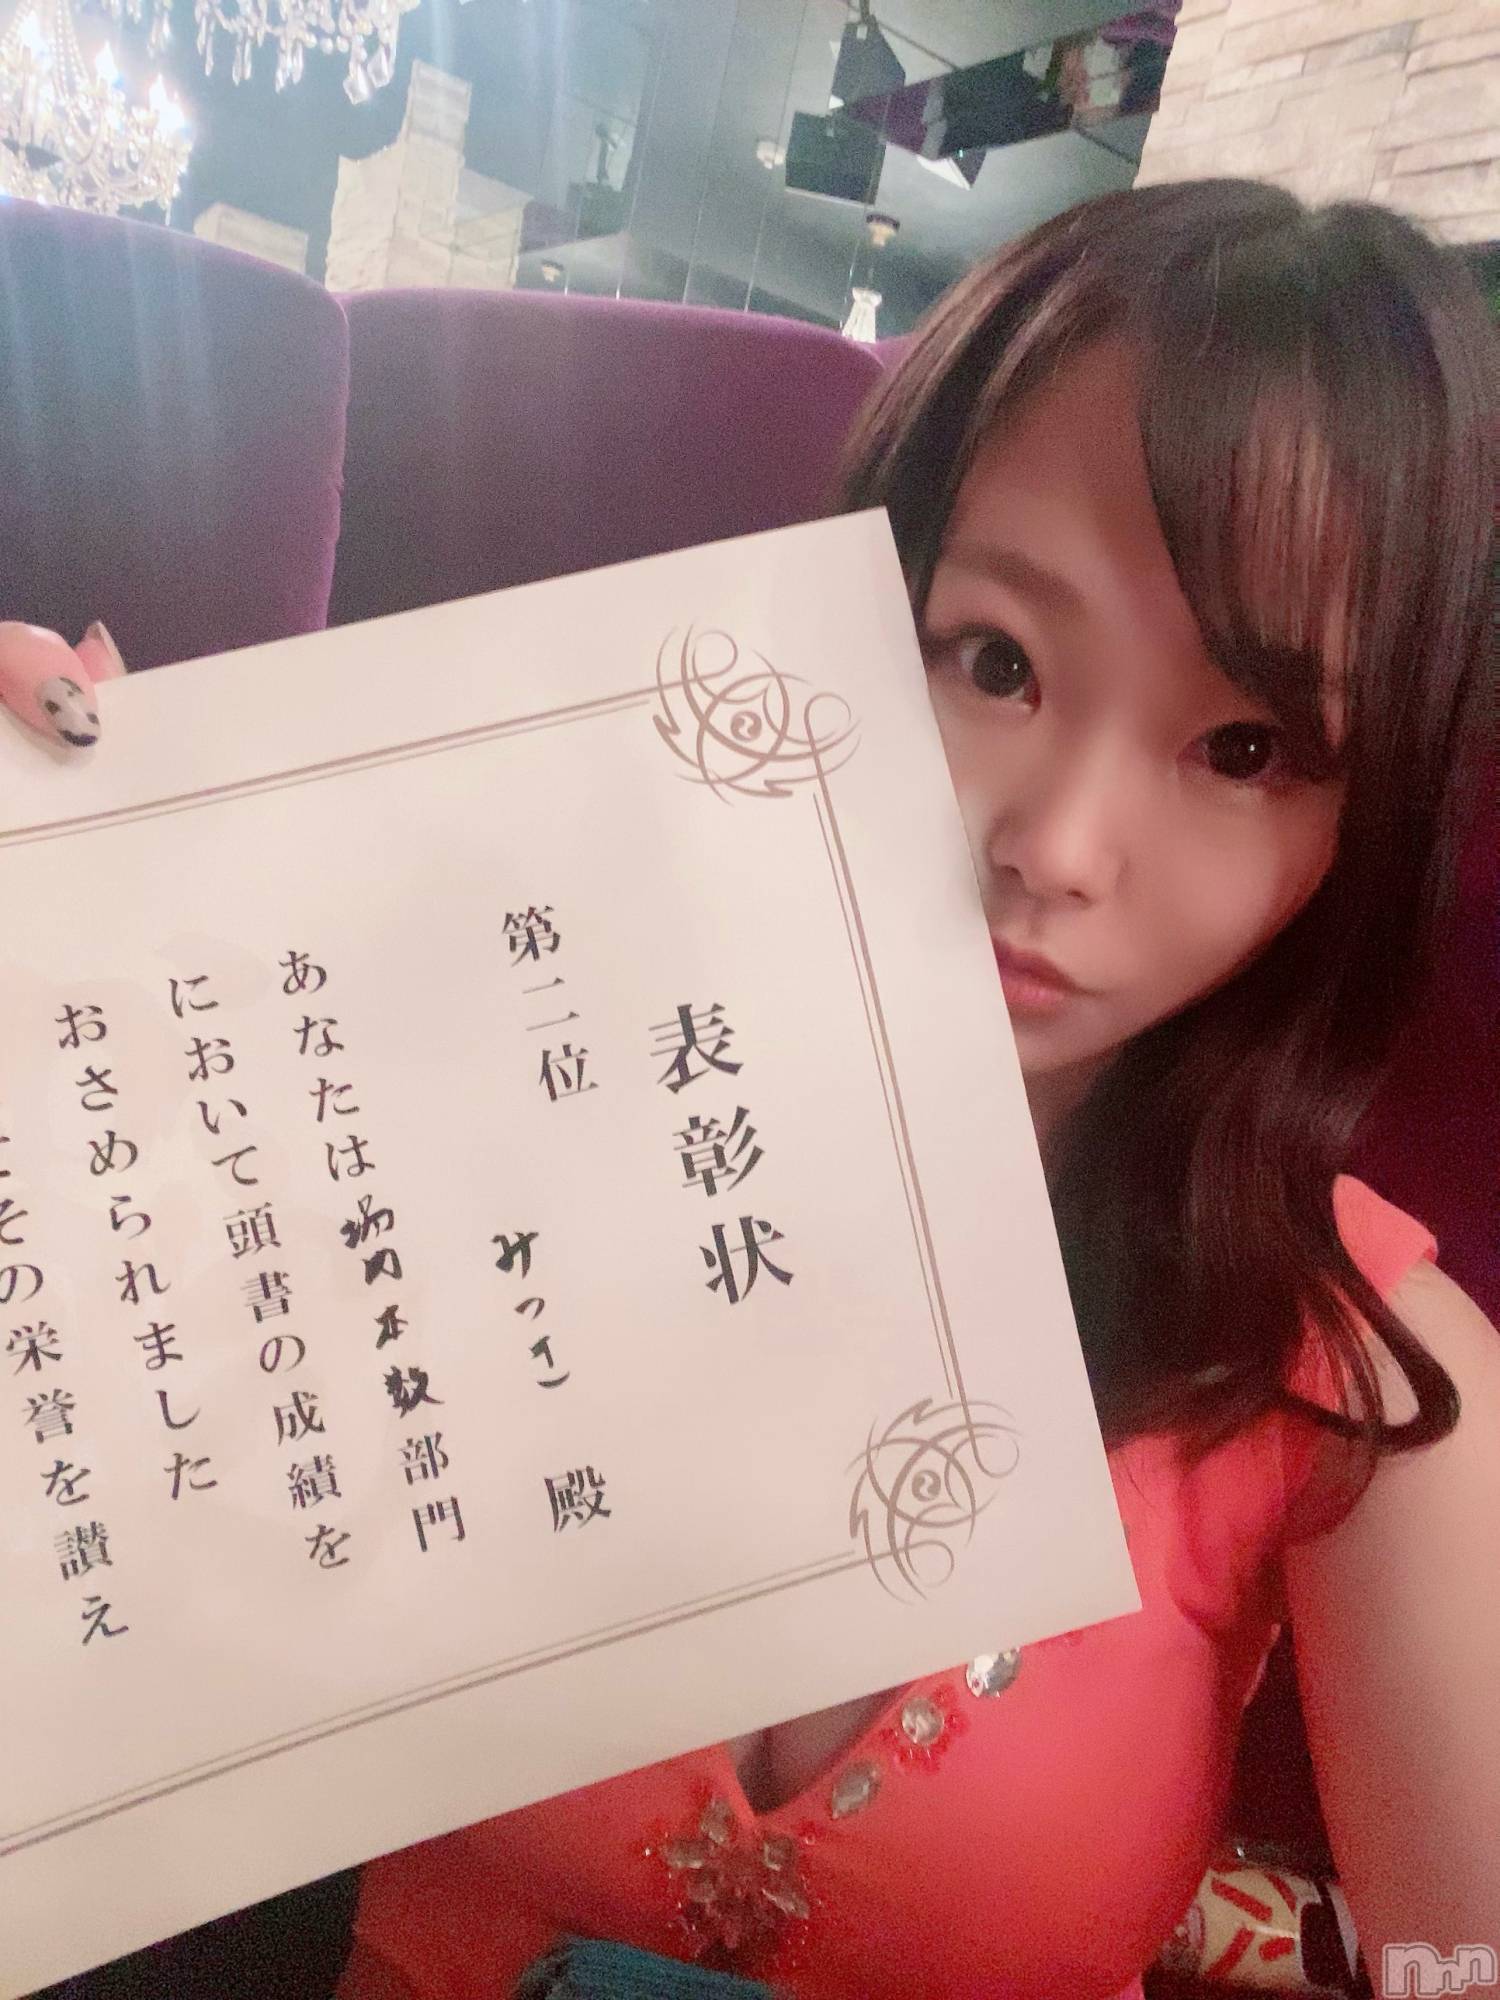 表彰状
第二位 みっさ 殿
あなたは場内本数部門
において頭書の成績を
おさめられました
その栄誉を讃え
nnn